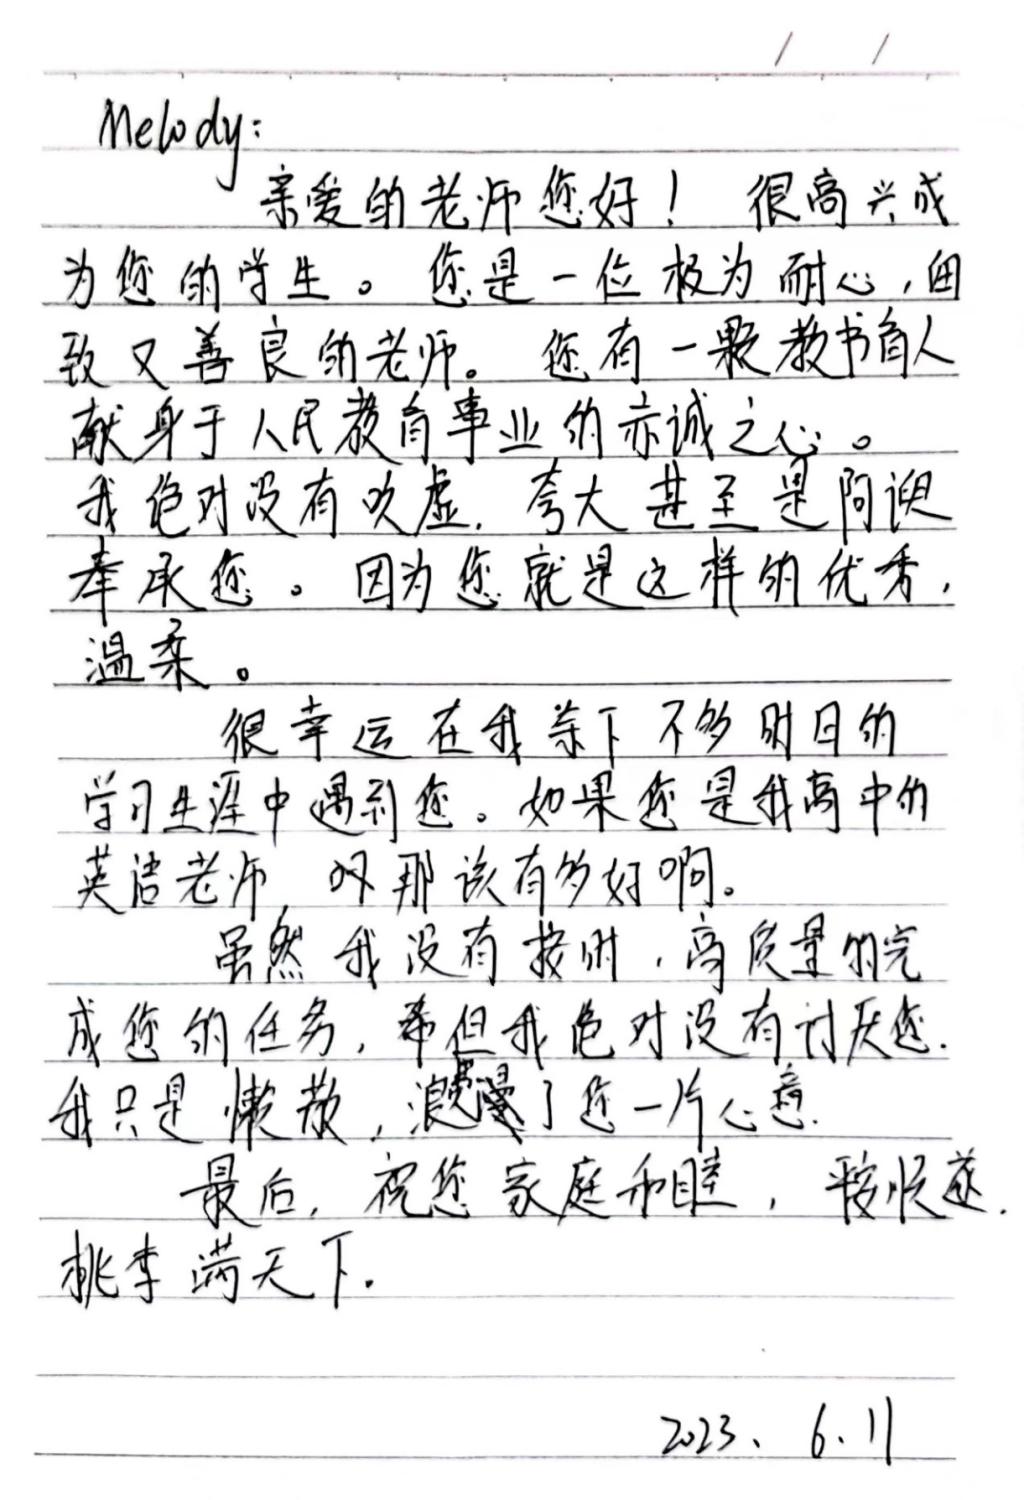 Melody:
亲爱的老师您好！ 很高兴成
为您的学生。您是一位极为耐心,细
致又善良的老师。您有一颗教书育人
献身于人民教育事业的赤诚之心。
我绝对没有吹虚,夸大甚至是阿谀
奉承您。因为您就是这样的优秀,
温柔。
很幸运在我余下不多时日的
学习生涯中遇到您。如果您是我高中的
英语老师,那该有多好啊。
虽然我没有按时,高质量的完
成您的任务,但我绝对没有讨厌您.
我只是懒散,浪费了您一片心意.
最后,祝您家庭和睦,平安顺遂.
桃李满天下.
2023. 6.11